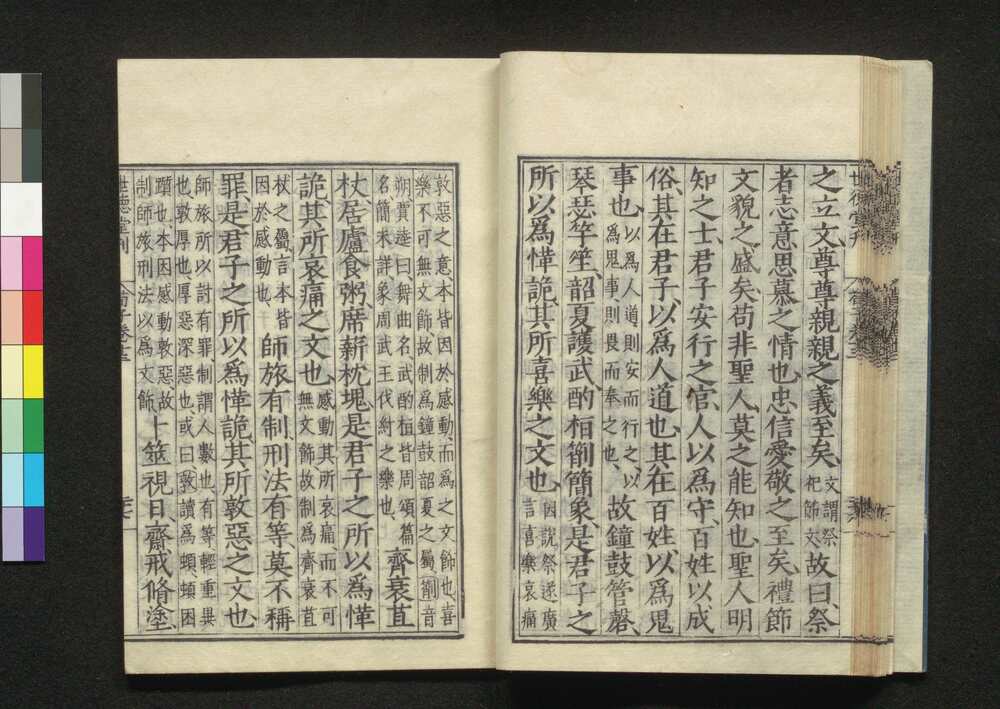 之立文尊尊親親之義至矣、文謂祭祀節文故曰、祭
者志意思慕之情也、忠信愛敬之至矣、禮節
文貌之盛矣、苟非聖人莫之能知也、聖人明
知之、士君子安行之、官人以爲守、百姓以成
俗、其在君子、以爲人道也、其在百姓、以爲鬼
事也、以爲人道則安而行之、以爲鬼事、則畏而奉之也、故鐘鼓管磬、
琴瑟竽笙、韶夏護武、酌桓箾簡象、是君子之
所以爲愅詭、其所喜樂之文也、因說祭遂廣言喜樂哀痛
敦惡之意、本皆因於感動、而爲之文飾也、喜樂不可無文飾、故制爲鐘鼓韶夏之屬、箾音
朔、賈逵曰、舞曲名、武酌桓皆周頌篇名、簡未詳、象周武王伐紂之樂也、齊衰苴
杖、居廬食粥、席薪枕塊、是君子之所以爲愅
詭、其所哀痛之文也、感動其所哀痛、而不可無文飾、故制爲齊衰苴
杖之屬、言本皆因於感動也、師旅有制、刑法有等、莫不稱
罪、是君子之所以爲愅詭、其所敦惡之文也、
師旅所以討有罪、制謂人數也、有等輕重異也、敦厚也、厚惡深惡也、或曰、敦讀爲頓、頓困
躓也、本因感動敦惡、故制師旅刑法、以爲文飾、卜筮視日、齋戒脩塗、
世德堂刊 荀子卷十三